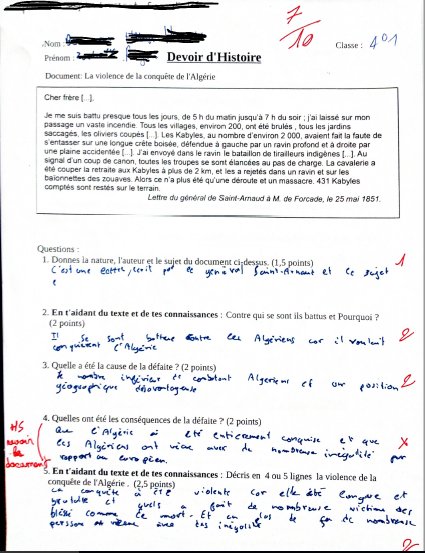 7/10
Nom :
Classe : 4°1
Prénom :
Devoir d'Histoire
Document: La violence de la conquête de l'Algérie
Cher frère [...].
Je me suis battu presque tous les jours, de 5 h du matin jusqu'à 7 h du soir ; j'ai laissé sur mon
passage un vaste incendie. Tous les villages, environ 200, ont été brûlés , tous les jardins
saccagés, les oliviers coupés [...]. Les Kabyles, au nombre d'environ 2 000, avaient fait la faute de
s'entasser sur une longue crête boisée, défendue à gauche par un ravin profond et à droite par
une plaine accidentée [...]. J'ai envoyé dans le ravin le bataillon de tirailleurs indigènes [...]. Au
signal d'un coup de canon, toutes les troupes se sont élancées au pas de charge. La cavalerie a
été couper la retraite aux Kabyles à plus de 2 km, et les a rejetés dans un ravin et sur les
baïonnettes des zouaves. Alors ce n'a plus été qu'une déroute et un massacre. 431 Kabyles
comptés sont restés sur le terrain.
Lettre du général de Saint-Arnaud à M. de Forcade, le 25 mai 1851.
Questions :
1. Donnes la nature, l'auteur et le sujet du document ci-dessus. (1,5 points)
1
C'est une lettre, écrit par le général Saint-Arnaut et ce sujet
2. En t'aidant du texte et de tes connaissances : Contre qui se sont ils battus et Pourquoi ?
(2 points)
2
Il se sont battue contre les Algériens car il voulait
conquérent l'Algérie
3. Quelle a été la cause de la défaite ? (2 points)
le nombre inférieur de combatant Algeriens et une position
2
géographique désavantageuse
4. Quelles ont été les conséquences de la défaite ? (2 points)
HS
revoir
le
document
Que l'Algérie a été entièrement conquise et que
les Algériens ont vécu avec de nombreuse inégalité par
rapport au européen.
5. En t'aidant du texte et de tes connaissances : Décris en 4 ou 5 lignes la violence de la
conquête de l'Algérie . (2,5 points)
La conquête a été violente car elle été longue et
brutale et quels a fait de nombreuse victime des
blésé comme de mort. Et en plus de ça de nombreuse
persone on vécue avec des inégalité
2